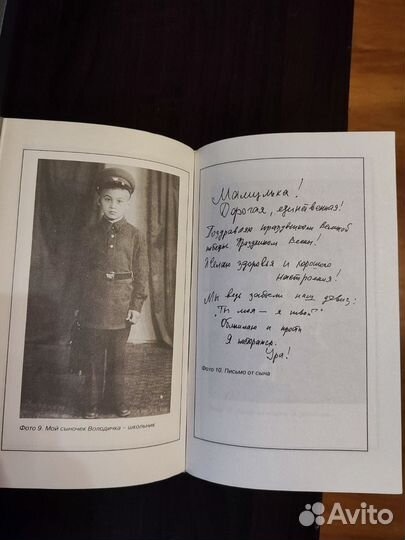 Фото 9. Мой сыночек Володичка – школьник
Мамулька!
Дорогая, единственная!
Поздравляю праздником Великой
победы. Праздником Весны!
Желаю здоровья и хорошего
настроения!
Мы ведь забыли наш девиз:
"Ты моя – я твой"
Обнимаю и прости
Я исправлюсь.
Ура!
Фото 10. Письмо от сына
Avito